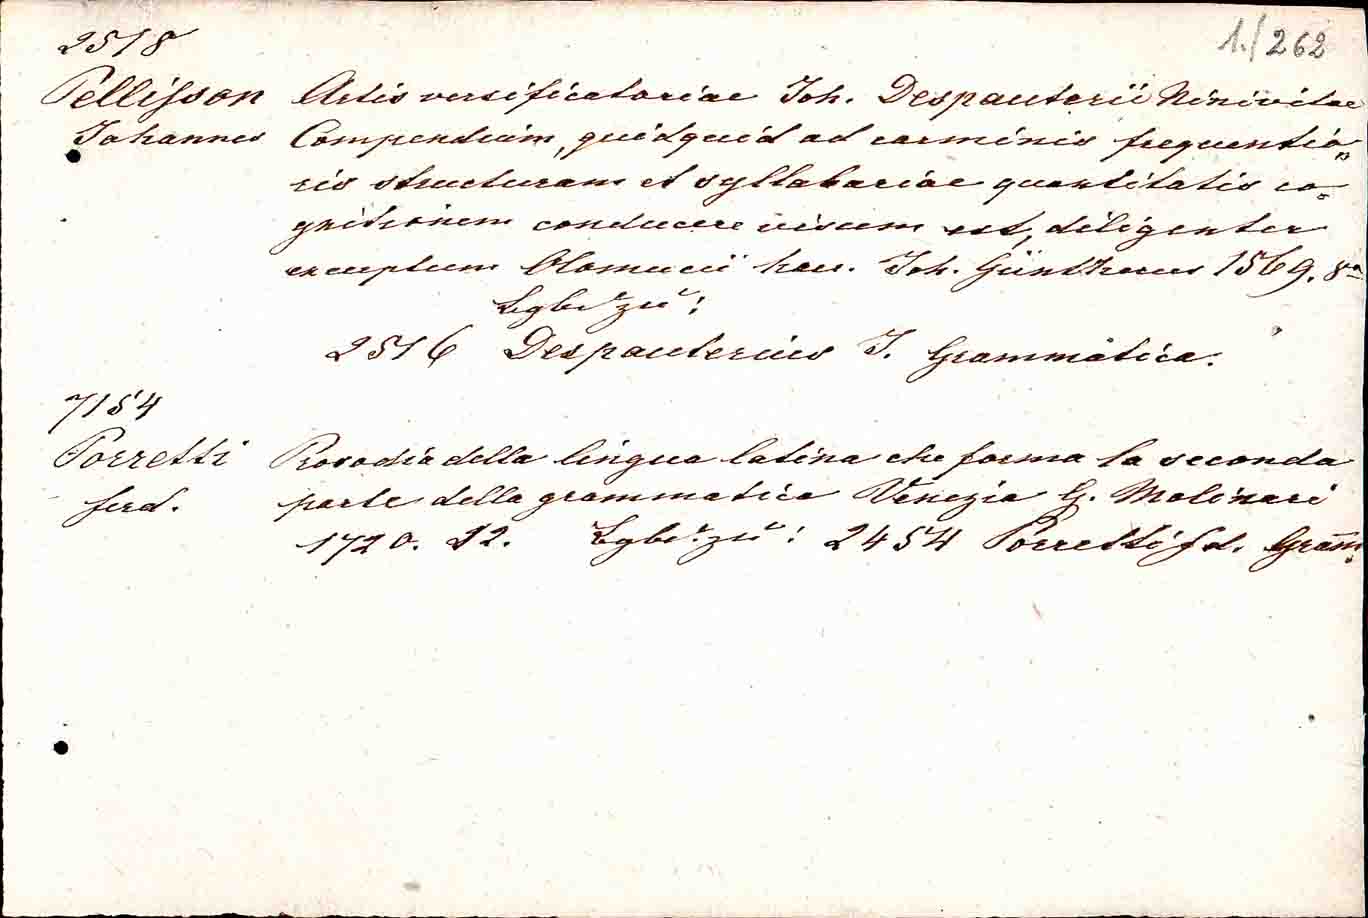 1./262
2518
Pellisson Artis versificatoriae Joh. Despauterii Ninivitae
Johannes Compendium, quidquid ad carminis frequentio-
ris structuram et syllabariae quantitatis co-
gnitionem conducere visum est, diligenter
exceptum Olomucii hau. Joh. Güntherus 1569. 8°
Egbe zu:
2516 Despauterius J. Grammatica.
7154
Porretti Prosodia della lingua latina che forma la seconda
ferd. parte della grammatica Venezia G. Molinari
1720. 12. Egbe zu: 2454 Porretti fd. Gram.